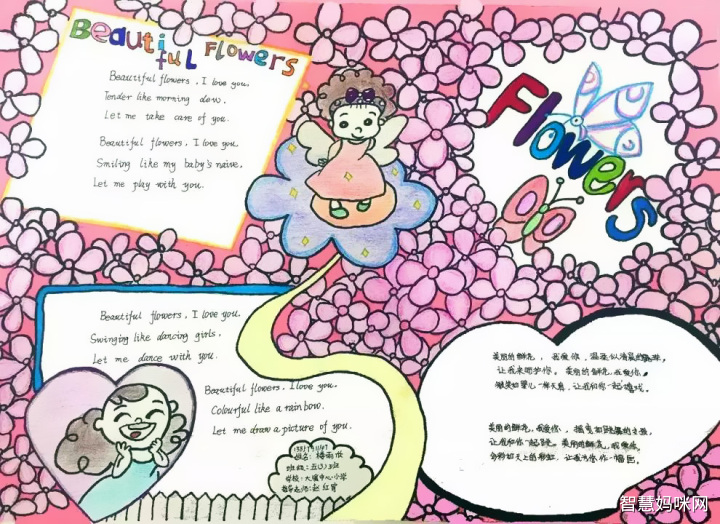 Beautiful Flowers
Beautiful flowers, I love you.
Tender like morning dew.
Let me take care of you.
Beautiful flowers, I love you.
Smiling like my baby's naive.
Let me play with you.
Flowers
Beautiful flowers, I love you.
Swinging like dancing girls.
Let me dance with you.
Beautiful flowers, I love you.
Colourful like a rainbow.
Let me draw a picture of you.
姓名:
班级:
学校:大 中心小学
指导老师:赵红
美丽的鲜花,我爱你,温柔似清晨的
让我来呵护你。美丽的鲜花我爱你,
微笑如婴儿一样天真,让我和你一起嬉戏。
美丽的鲜花,我爱你,摇曳如跳舞的女孩,
让我和你一起跳。美丽的鲜花,我爱你,
多彩如天上的彩虹,让我为你作一幅画。
智慧妈咪网